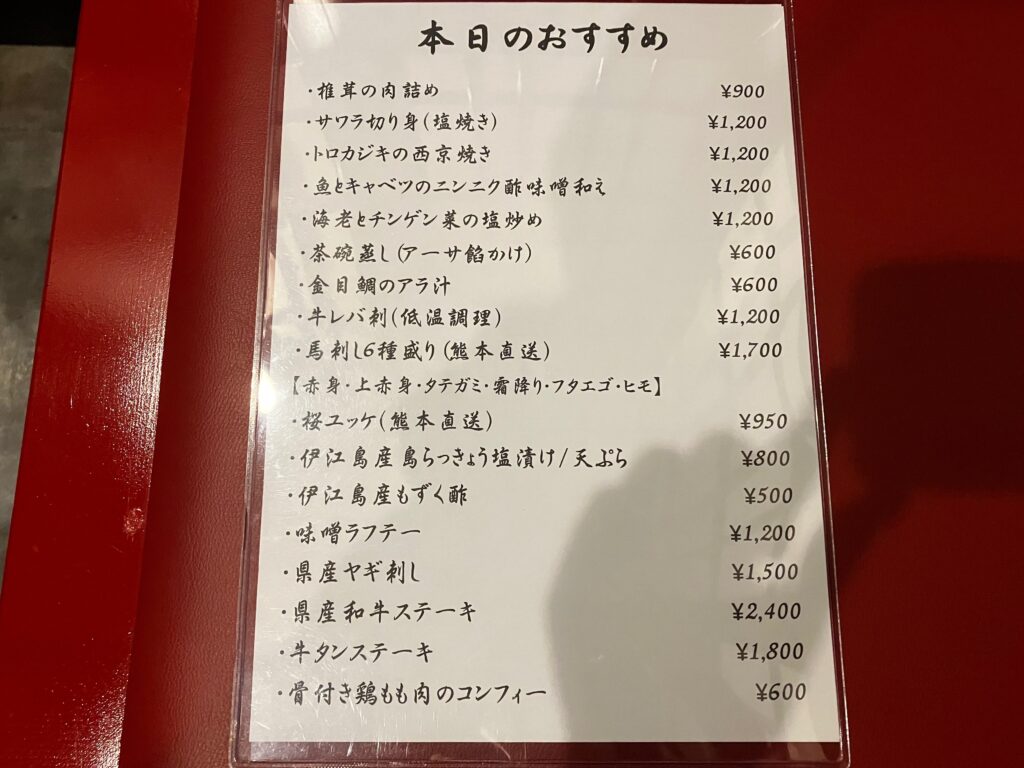 本日のおすすめ
・椎茸の肉詰め ¥900
・サワラ切り身(塩焼き) ¥1,200
・トロカジキの西京焼き ¥1,200
・魚とキャベツのニンニク酢味噌和え ¥1,200
・海老とチンゲン菜の塩炒め ¥1,200
・茶碗蒸し(アーサ餡かけ) ¥600
・金目鯛のアラ汁 ¥600
・牛レバ刺(低温調理) ¥1,200
・馬刺し6種盛り(熊本直送) ¥1,700
【赤身・上赤身・タテガミ・霜降り・フタエゴ・ヒモ】
・桜ユッケ(熊本直送) ¥950
・伊江島産島らっきょう塩漬け/天ぷら ¥800
・伊江島産もずく酢 ¥500
・味噌ラフテー ¥1,200
・県産ヤギ刺し ¥1,500
・県産和牛ステーキ ¥2,400
・牛タンステーキ ¥1,800
・骨付き鶏もも肉のコンフィー ¥600